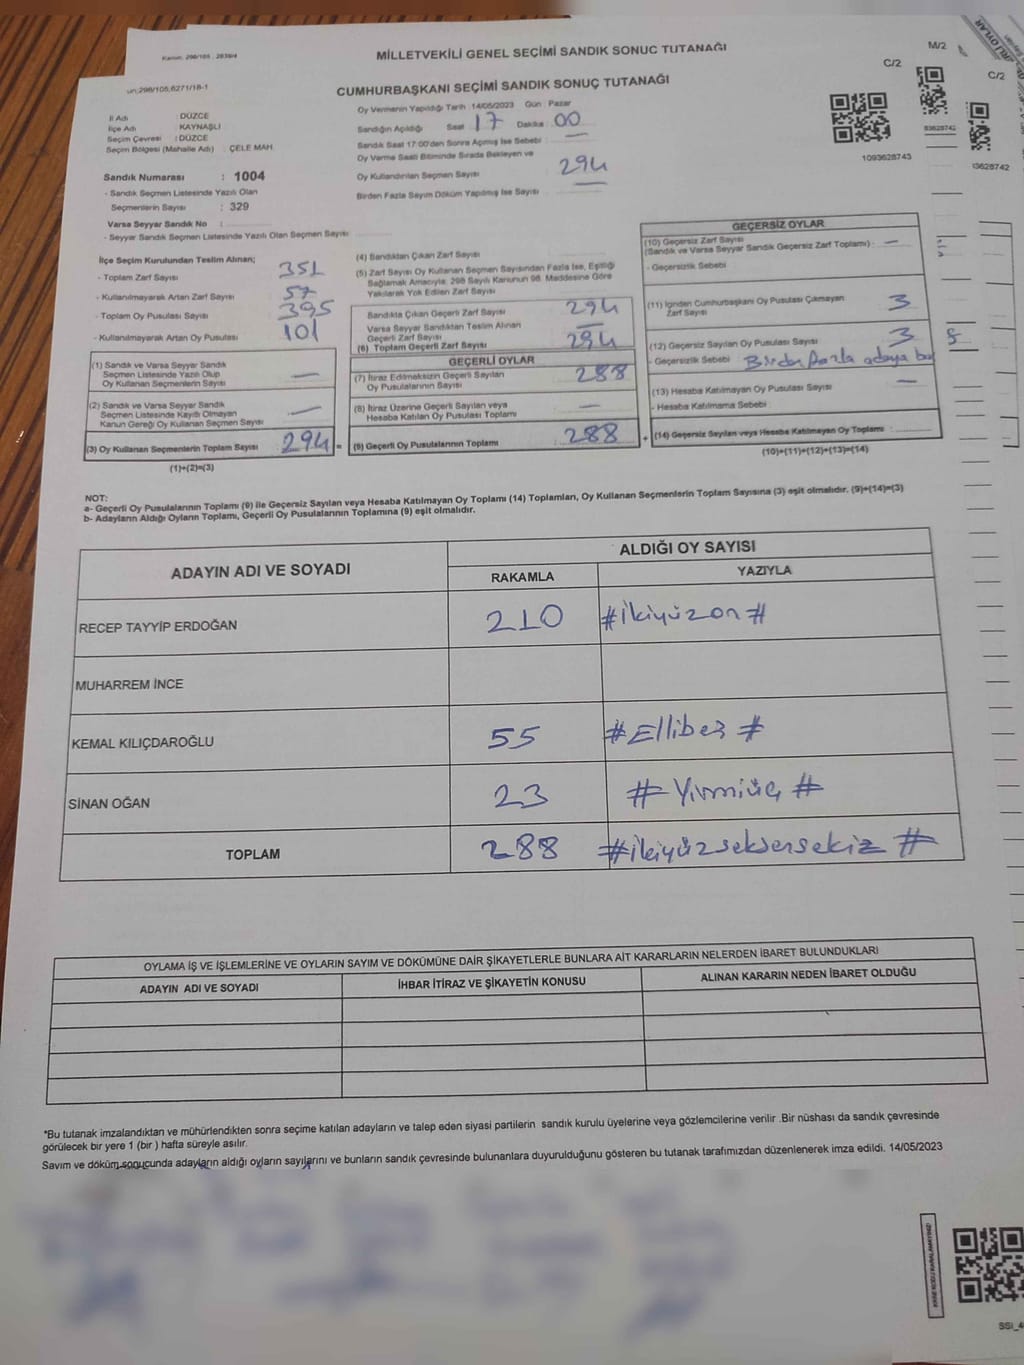 Kanun: 298/105 , 2839/4
MİLLETVEKİLİ GENEL SEÇİMİ SANDIK SONUÇ TUTANAĞI
M/2
un:298/105,6271/18-1
CUMHURBAŞKANI SEÇİMİ SANDIK SONUÇ TUTANAĞI
C/2
C/2
İl Adı : DÜZCE
İlçe Adı : KAYNAŞLI
Seçim Çevresi : DÜZCE
Seçim Bölgesi (Mahalle Adı) : ÇELE MAH.
Sandık Numarası : 1004
- Sandık Seçmen Listesinde Yazılı Olan
Seçmenlerin Sayısı : 329
Varsa Seyyar Sandık No :
- Seyyar Sandık Seçmen Listesinde Yazılı Olan Seçmen Sayısı
Oy Vermenin Yapıldığı Tarih 14/05/2023 Gün : Pazar
Sandığın Açıldığı Saat 17 Dakika : 00
Sandık Saat 17:00'den Sonra Açılmış İse Sebebi : —
Oy Verme Saati Bitiminde Sırada Bekleyen ve
Oy Kullandırılan Seçmen Sayısı 294
Birden Fazla Sayım Döküm Yapılmış İse Sayısı —
1093628743
93628742
93628742
İlçe Seçim Kurulundan Teslim Alınan;
- Toplam Zarf Sayısı 351
- Kullanılmayarak Artan Zarf Sayısı 57
- Toplam Oy Pusulası Sayısı 395
- Kullanılmayarak Artan Oy Pusulası 101
(1) Sandık ve Varsa Seyyar Sandık
Seçmen Listesinde Yazılı Olup
Oy Kullanan Seçmenlerin Sayısı —
(2) Sandık ve Varsa Seyyar Sandık
Seçmen Listesinde Kayıtlı Olmayan
Kanun Gereği Oy Kullanan Seçmen Sayısı —
(3) Oy Kullanan Seçmenlerin Toplam Sayısı 294 =
(1)+(2)=(3)
(4) Sandıktan Çıkan Zarf Sayısı
(5) Zarf Sayısı Oy Kullanan Seçmen Sayısından Fazla İse, Eşitliği
Sağlamak Amacıyla; 298 Sayılı Kanunun 98. Maddesine Göre
Yakılarak Yok Edilen Zarf Sayısı
Sandıkta Çıkan Geçerli Zarf Sayısı 294
Varsa Seyyar Sandıktan Teslim Alınan
Geçerli Zarf Sayısı —
(6) Toplam Geçerli Zarf Sayısı 294
GEÇERLİ OYLAR
(7) İtiraz Edilmeksizin Geçerli Sayılan
Oy Pusulalarının Sayısı 288
(8) İtiraz Üzerine Geçerli Sayılan veya
Hesaba Katılan Oy Pusulası Toplamı —
(9) Geçerli Oy Pusulalarının Toplamı 288 +
GEÇERSİZ OYLAR
(10) Geçersiz Zarf Sayısı
(Sandık ve Varsa Seyyar Sandık Geçersiz Zarf Toplamı) : —
- Geçersizlik Sebebi
(11) İçinden Cumhurbaşkanı Oy Pusulası Çıkmayan
Zarf Sayısı 3
(12) Geçersiz Sayılan Oy Pusulası Sayısı 3
- Geçersizlik Sebebi : Birden fazla adaya
(13) Hesaba Katılmayan Oy Pusulası Sayısı —
- Hesaba Katılmama Sebebi :
(14) Geçersiz Sayılan veya Hesaba Katılmayan Oy Toplamı :
(10)+(11)+(12)+(13)=(14)
NOT:
a- Geçerli Oy Pusulalarının Toplamı (9) ile Geçersiz Sayılan veya Hesaba Katılmayan Oy Toplamı (14) Toplamları, Oy Kullanan Seçmenlerin Toplam Sayısına (3) eşit olmalıdır. (9)+(14)=(3)
b- Adayların Aldığı Oyların Toplamı, Geçerli Oy Pusulalarının Toplamına (9) eşit olmalıdır.
ADAYIN ADI VE SOYADI
ALDIĞI OY SAYISI
RAKAMLA
YAZIYLA
RECEP TAYYİP ERDOĞAN 210 #ikiyüzon#
MUHARREM İNCE
KEMAL KILIÇDAROĞLU 55 #Ellibeş#
SİNAN OĞAN 23 #Yirmiüç#
TOPLAM 288 #ikiyüzseksensekiz#
OYLAMA İŞ VE İŞLEMLERİNE VE OYLARIN SAYIM VE DÖKÜMÜNE DAİR ŞİKAYETLERLE BUNLARA AİT KARARLARIN NELERDEN İBARET BULUNDUKLARI
ADAYIN ADI VE SOYADI
İHBAR İTİRAZ VE ŞİKAYETİN KONUSU
ALINAN KARARIN NEDEN İBARET OLDUĞU
*Bu tutanak imzalandıktan ve mühürlendikten sonra seçime katılan adayların ve talep eden siyasi partilerin sandık kurulu üyelerine veya gözlemcilerine verilir .Bir nüshası da sandık çevresinde
görülecek bir yere 1 (bir ) hafta süreyle asılır.
Sayım ve döküm sonucunda adayların aldığı oyların sayılarını ve bunların sandık çevresinde bulunanlara duyurulduğunu gösteren bu tutanak tarafımızdan düzenlenerek imza edildi. 14/05/2023